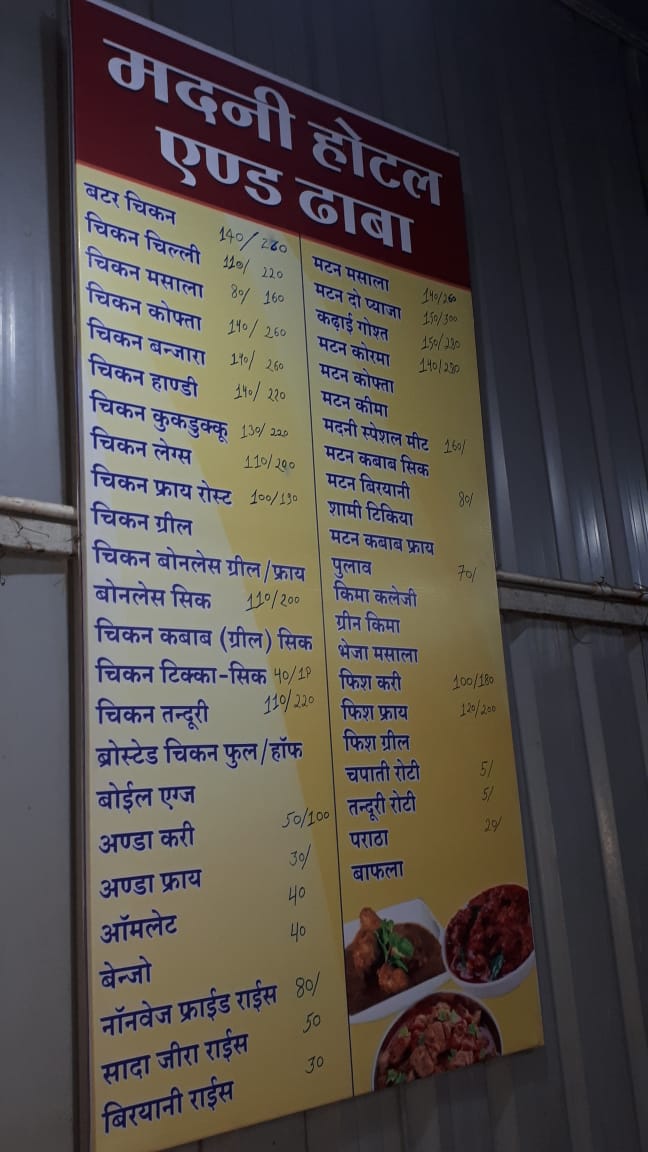 मदनी होटल
एण्ड ढाबा
बटर चिकन 140/280
चिकन चिल्ली 110/220
चिकन मसाला 80/160
चिकन कोफ्ता 140/260
चिकन बन्जारा 140/260
चिकन हाण्डी 140/220
चिकन कुकडुक्कू 130/220
चिकन लेग्स 110/200
चिकन फ्राय रोस्ट 100/190
चिकन ग्रील
चिकन बोनलेस ग्रील/फ्राय
बोनलेस सिक 110/200
चिकन कबाब (ग्रील) सिक
चिकन टिक्का-सिक 40/1P
चिकन तन्दूरी 110/220
ब्रोस्टेड चिकन फुल/हॉफ
बोईल एग्ज
अण्डा करी 50/100
अण्डा फ्राय 30/
ऑमलेट 40
बेन्जो 40
नॉनवेज फ्राईड राईस 80/
सादा जीरा राईस 50
बिरयानी राईस 30
मटन मसाला 140/260
मटन दो प्याजा 150/300
कढ़ाई गोश्त 150/280
मटन कोरमा 140/280
मटन कोफ्ता
मटन कीमा
मदनी स्पेशल मीट 160/
मटन कबाब सिक
मटन बिरयानी 80/
शामी टिकिया
मटन कबाब फ्राय
पुलाव 70/
किमा कलेजी
ग्रीन किमा
भेजा मसाला
फिश करी 100/180
फिश फ्राय 120/200
फिश ग्रील
चपाती रोटी 5/
तन्दूरी रोटी 5/
पराठा 20/
बाफला